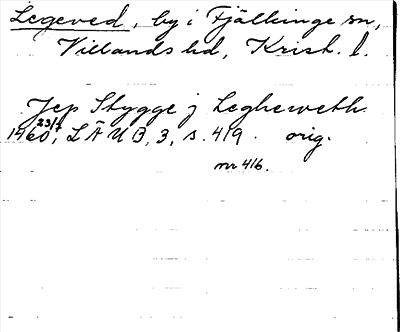 Legeved, by i Fjälkinge sn,
Villands hd, Krist. l.
Jep Stygge j Legheweth
1460 23/7, LÄUB, 3, s. 419. orig.
nr 416.